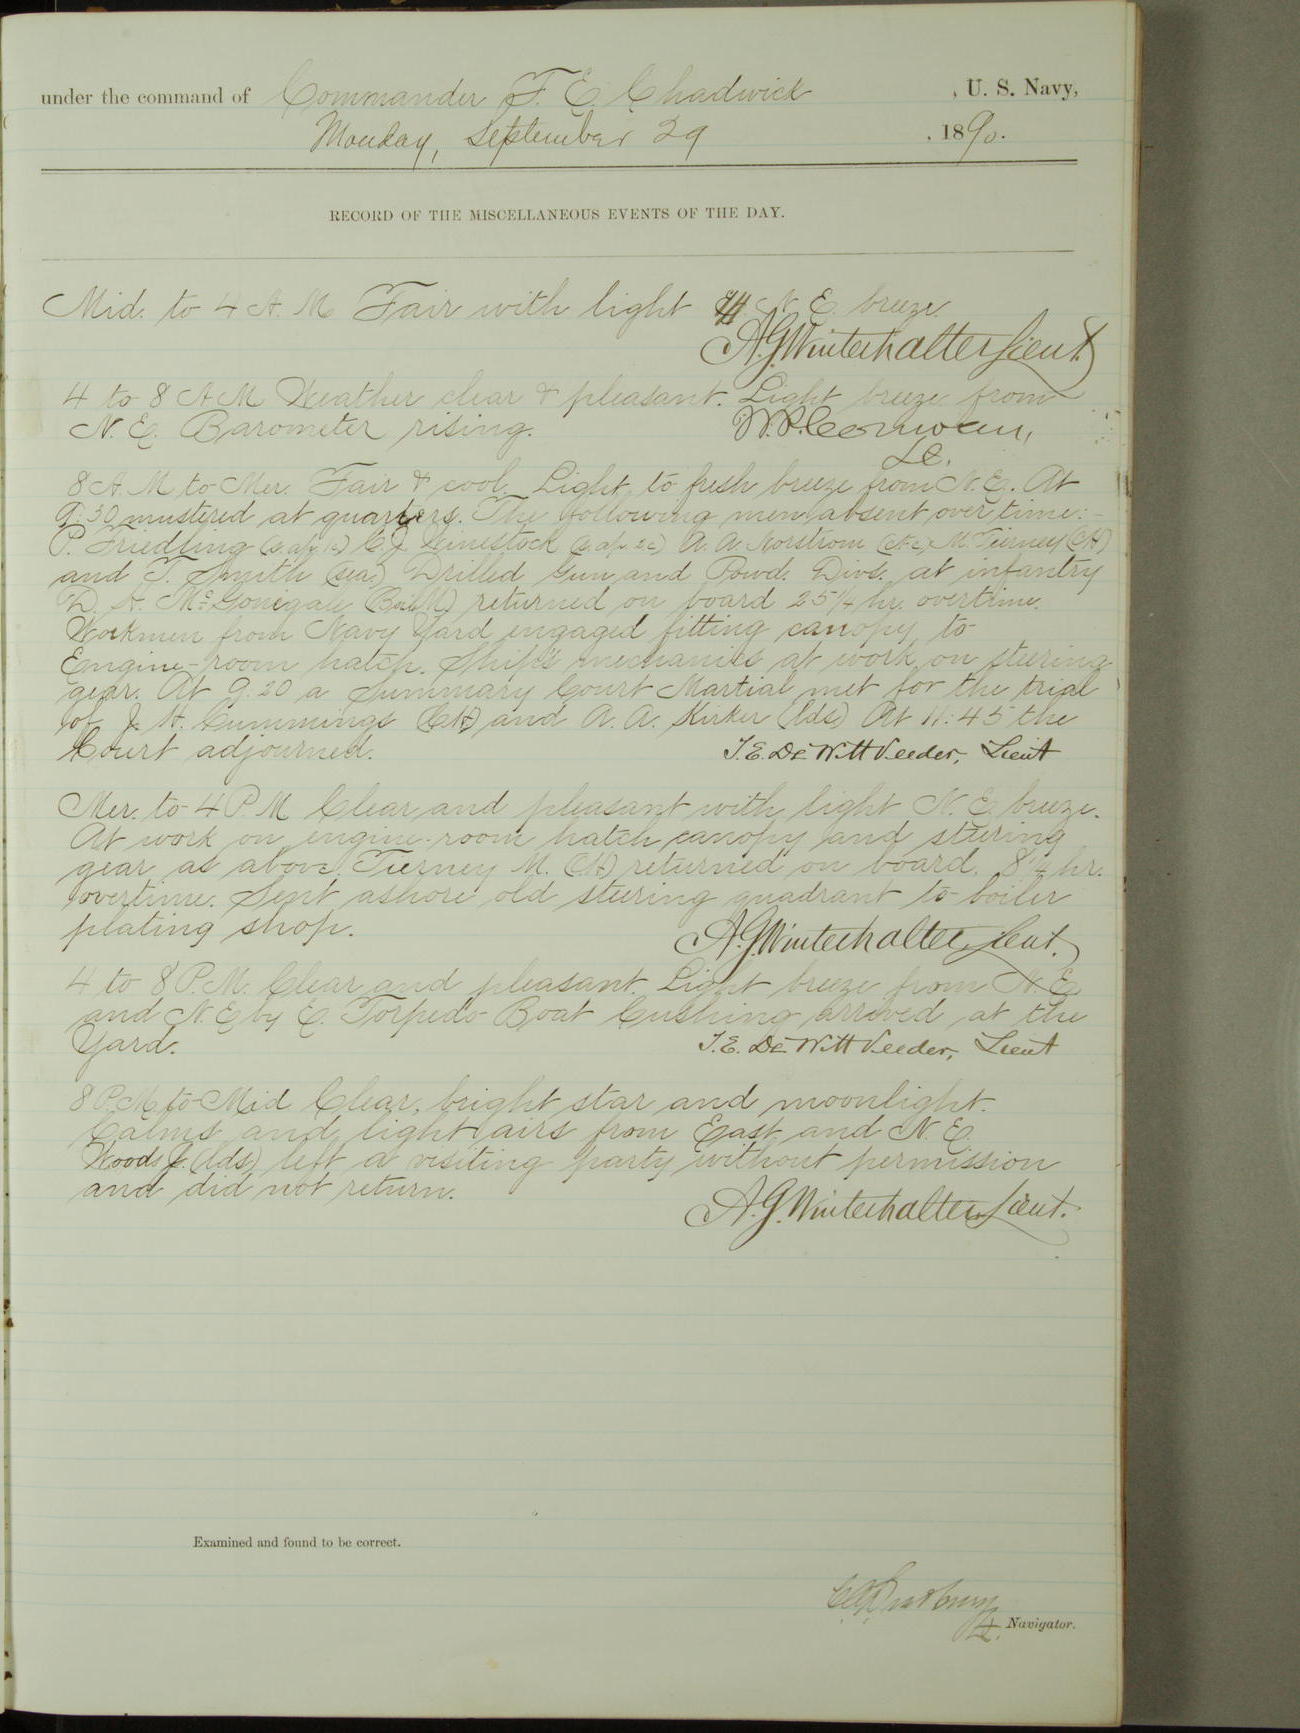 under the command of Commander F. E. Chadwick, U. S. Navy,
Monday, September 29, 1890.
RECORD OF THE MISCELLANEOUS EVENTS OF THE DAY.
Mid. to 4 A. M. Fair with light N. E. breeze
A.G. Winterhalter Lieut.
4 to 8 A M Weather clear & pleasant. Light breeze from
N. E. Barometer rising.
8 A. M to Mer. Fair & cool. Light to fresh breeze from N. E. At
9:30 mustered at quarters. The following men absent over time:-
P. Friedling (S. ap. 1c) C. J. (S. ap. 2c) A. A. Norstrom M. Tierney (CH)
and T. Smith (sea.) Drilled Gun and Powd. Divs. at infantry
D. A. McGonegale (Boil M) returned on board 25 1/4 hr. overtime.
Workmen from Navy Yard engaged fitting canopy to
Engine-room hatch. Ship's mechanics at work on steering
gear. At 9.20 a Summary Court Martial met for the trial
of J. H. Cummings (CH) and A. A. Kirker (lds) At 11:45 the
Court adjourned.
T. E. DeWitt Veeder, Lieut
Mer. to 4 P. M Clear and pleasant with light N. E. breeze.
At work on engine-room hatch canopy and steering
gear as above. Tierney M. (CH) returned on board. 8 hr.
overtime. Sent ashore old steering quadrant to boiler
plating shop.
A.G. Winterhalter, Lieut.
4 to 8 P. M. Clear and pleasant. Light breeze from N. E
and N. E by E. Torpedo Boat Cushing arrived at the
Yard.
T. E. DeWitt Veeder, Lieut
8 P.M to Mid Clear, bright star and moonlight.
Calms and light airs from East and N. E.
Woods J. (lds) left a visiting party without permission
and did not return.
A.G. Winterhalter Lieut.
Examined and found to be correct.
Navigator.